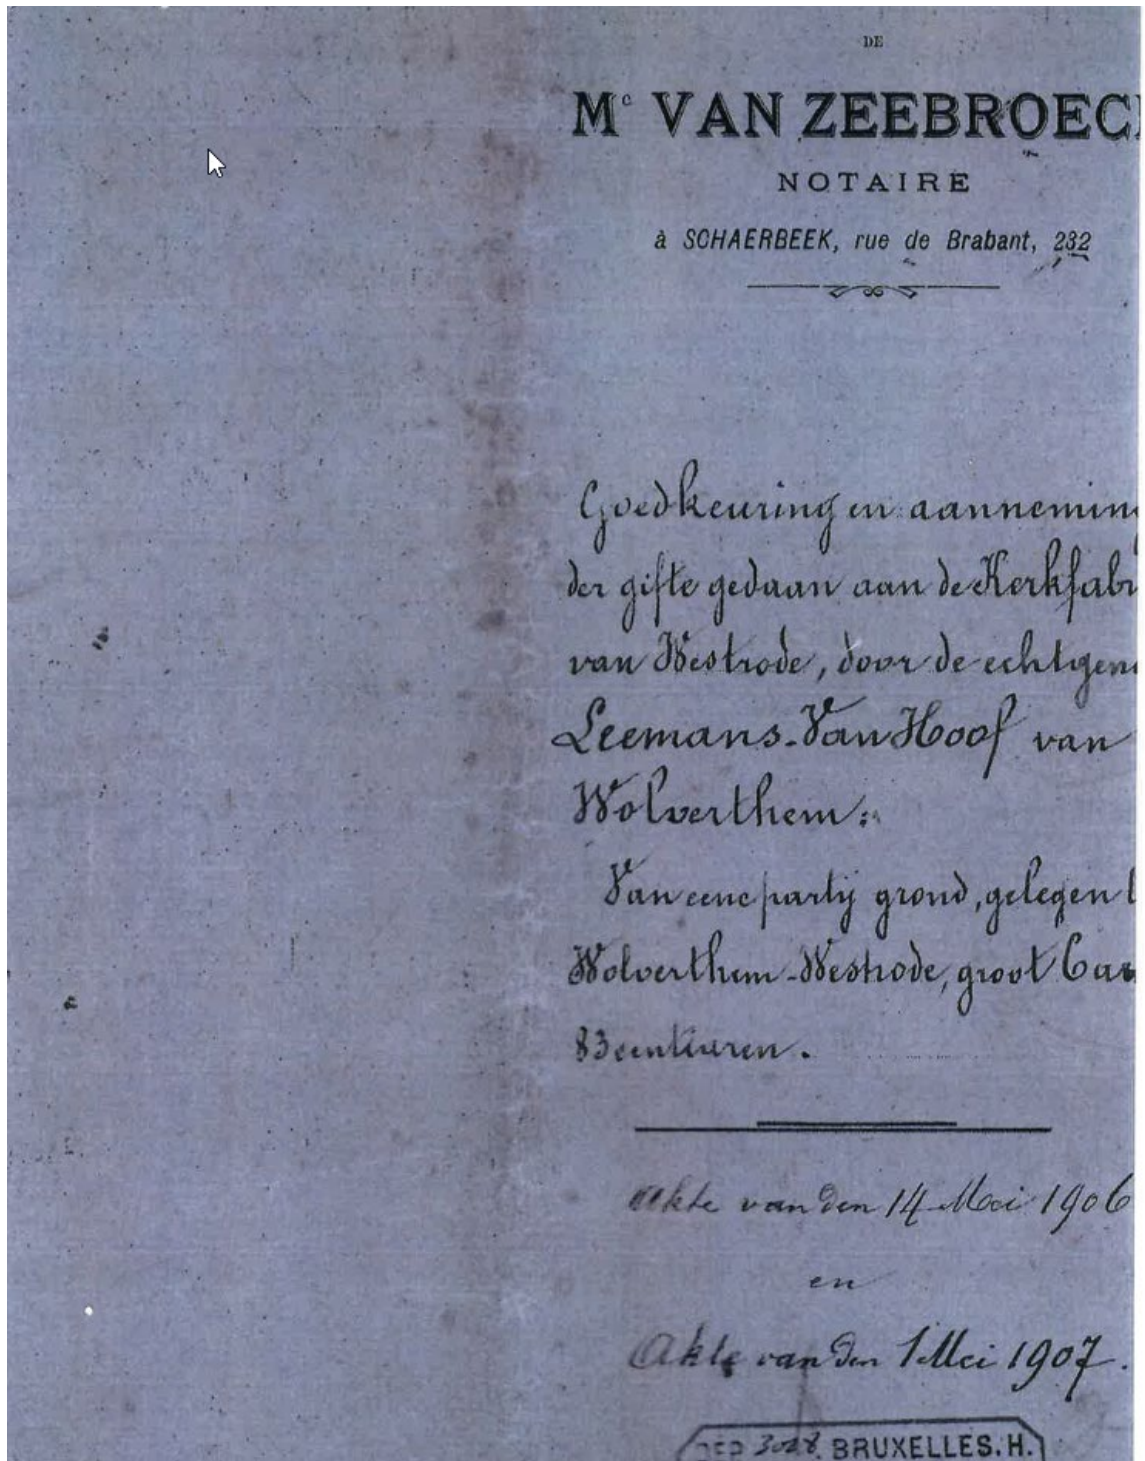 DE
Mᵉ VAN ZEEBROEC
NOTAIRE
à SCHAERBEEK, rue de Brabant, 232
Goedkeuring en aannemin
der gifte gedaan aan de Kerkfabr
van Westrode, door de echtgen
Leemans-Van Hoof van
Wolverthem:
Van eene partij grond, gelegen
Wolverthem-Westrode, groot 6 ar
83 centiaren.
Akte van den 14 Mei 1906
en
Akte van den 1 Mei 1907.
REP 3028 BRUXELLES. H.